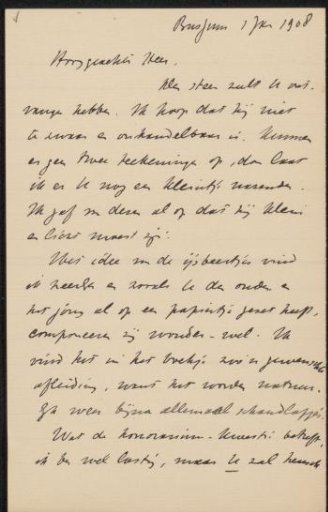 Bussum 1 Jan 1908
Hooggeachte Heer.
Den steen zult U ont-
vangen hebben. Ik hoop dat hij niet
te zwaar en onhandelbaar is. Kunnen
er geen twee teekeningen op, dan laat
ik er U nog een kleintje nazenden.
Ik gaf den al op dat hij klein
en licht moest zijn.
Het idee van de ijsbeertjes vind
ik heerlijk en zooals U den ouden en
het jong al op een papiertje gezet heeft,
componeeren zij wonder-wel. Ik
vind het in het boekje zoo'n gewenschte
afleiding, want het worden natuur-
lijk weer bijna allemaal
Wat de honorarium-kwestie betreft,
ik ben wel lastig, maar U zal